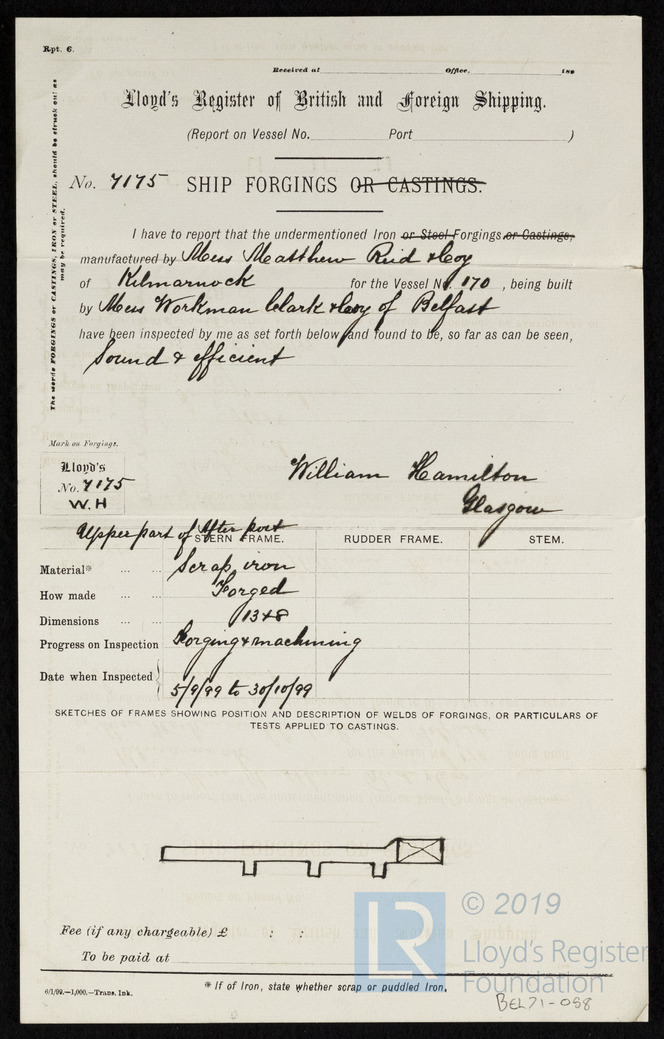 Rpt. 6.
Received at Office, 188
Lloyd's Register of British and Foreign Shipping.
(Report on Vessel No. Port )
No. 7175 SHIP FORGINGS OR CASTINGS.
The words FORGINGS or CASTINGS, IRON or STEEL, should be struck out as
may be required.
I have to report that the undermentioned Iron or Steel Forgings or Castings,
manufactured by Mess Matthew Reid & Coy
of Kilmarnock for the Vessel No. 170 , being built
by Mess Workman Clark & Coy of Belfast
have been inspected by me as set forth below and found to be, so far as can be seen,
Sound & efficient
Mark on Forgings.
Lloyd's
No. 7175
W.H
William Hamilton
Glasgow
Upper part of After post
STERN FRAME. RUDDER FRAME. STEM.
Material* ... ... Scrap iron
How made ... Forged
Dimensions ... ... 13 x 8
Progress on Inspection Forging & machining
Date when Inspected 5/9/99 to 30/10/99
SKETCHES OF FRAMES SHOWING POSITION AND DESCRIPTION OF WELDS OF FORGINGS, OR PARTICULARS OF
TESTS APPLIED TO CASTINGS.
Fee (if any chargeable) £ : :
To be paid at
6/1/99.—1,000.—Trans. Ink.
* If of Iron, state whether scrap or puddled Iron.
LR
© 2019
Lloyd's Register
Foundation
BEL71-058